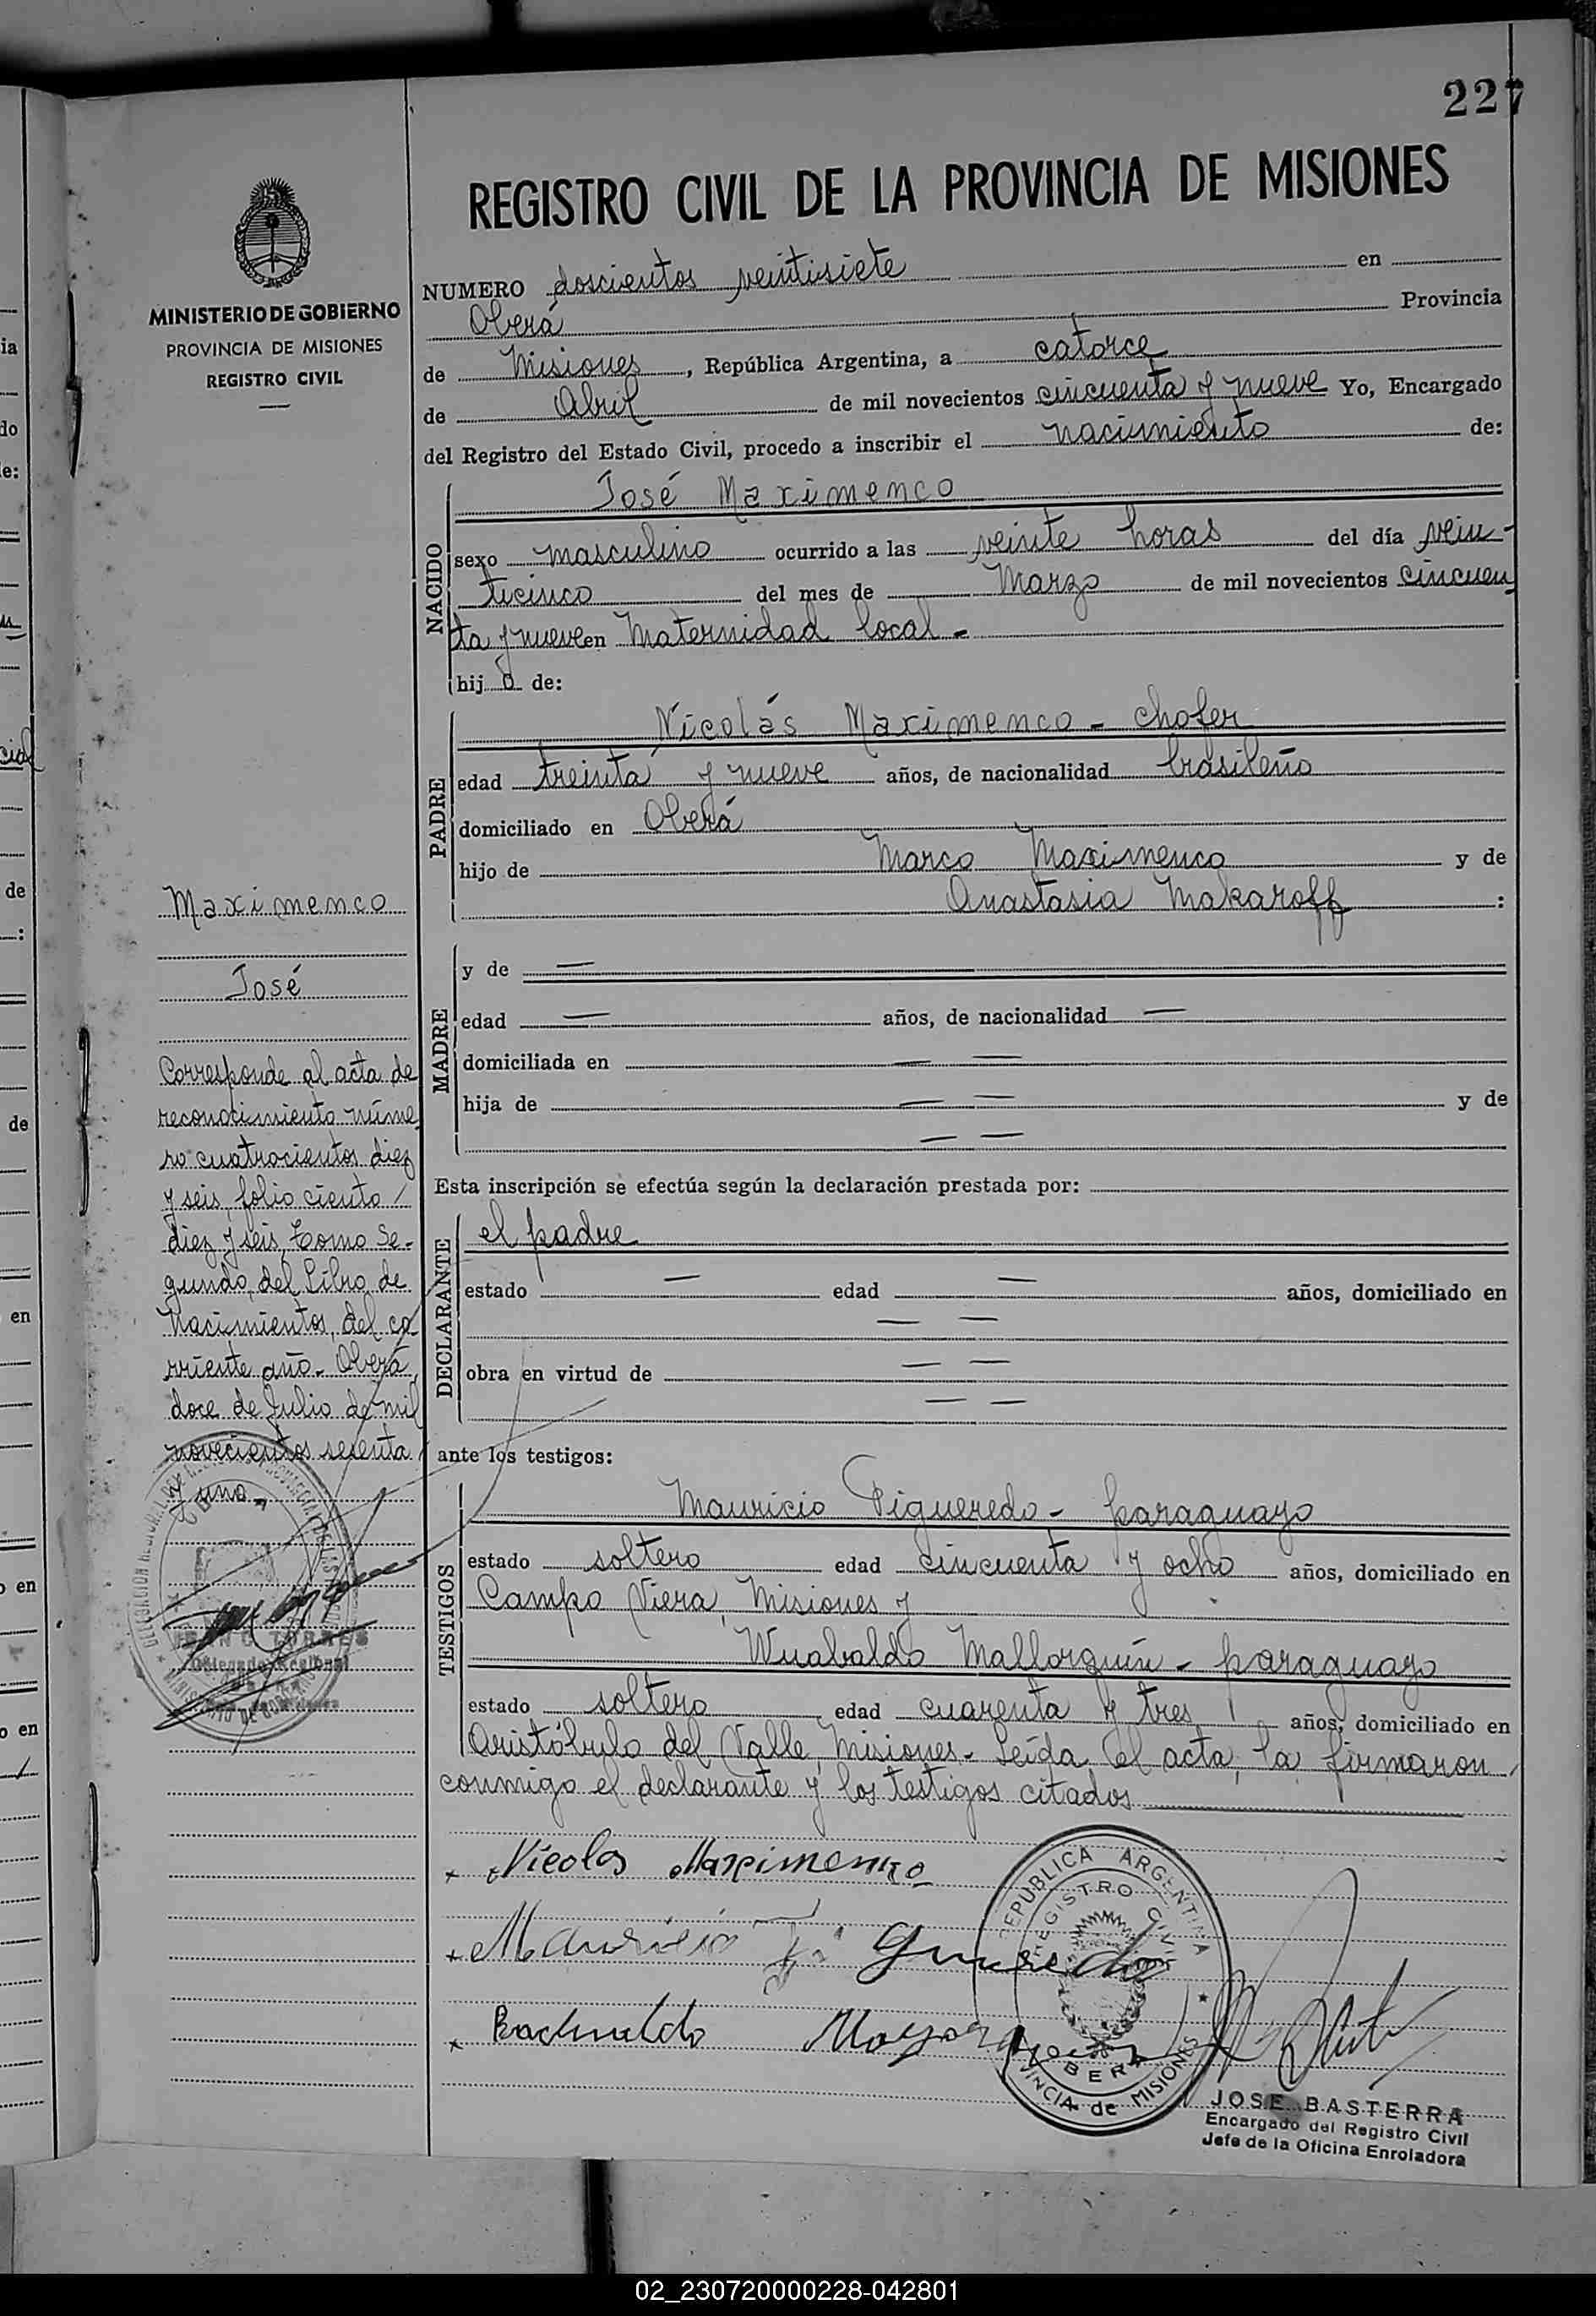 227
REGISTRO CIVIL DE LA PROVINCIA DE MISIONES
MINISTERIO DE GOBIERNO
PROVINCIA DE MISIONES
REGISTRO CIVIL
NUMERO doscientos veintisiete en
Oberá Provincia
de Misiones, República Argentina, a catorce
de Abril de mil novecientos cincuenta y nueve Yo, Encargado
del Registro del Estado Civil, procedo a inscribir el nacimiento de:
NACIDO
José Maximenco
sexo masculino ocurrido a las veinte horas del día vein-
ticinco del mes de Marzo de mil novecientos cincuen
ta y nueve en Maternidad local -
hijo de:
PADRE
Nicolás Maximenco - chofer
edad treinta y nueve años, de nacionalidad brasileño
domiciliado en Oberá
hijo de Marco Maximenco y de
Anastasia Makaroff :
MADRE
y de —
edad — años, de nacionalidad —
domiciliada en — —
hija de — — y de
— —
Esta inscripción se efectúa según la declaración prestada por:
DECLARANTE
el padre
estado — edad — años, domiciliado en
— —
obra en virtud de — —
— —
ante los testigos:
TESTIGOS
Mauricio Figueredo - paraguayo
estado soltero edad cincuenta y ocho años, domiciliado en
Campo Viera, Misiones y
Wuabaldo Mallorquín - paraguayo
estado soltero edad cuarenta y tres años, domiciliado en
Aristóbulo del Valle, Misiones - Leída el acta, la firmaron
conmigo el declarante y los testigos citados
Maximenco
José
Corresponde al acta de
reconocimiento núme
ro cuatrocientos diez
y seis, folio ciento
diez y seis, Tomo Se-
gundo, del Libro de
Nacimientos, del co
rriente año - Oberá,
doce de Julio de mil
novecientos sesenta
y uno -
TORRES
Delegado Regional
Nicolas Maximenco
Mauricio Figueredo
REPUBLICA ARGENTINA
REGISTRO CIVIL
OBERA
PROVINCIA de MISIONES
JOSE BASTERRA
Encargado del Registro Civil
Jefe de la Oficina Enroladora
02_230720000228-042801